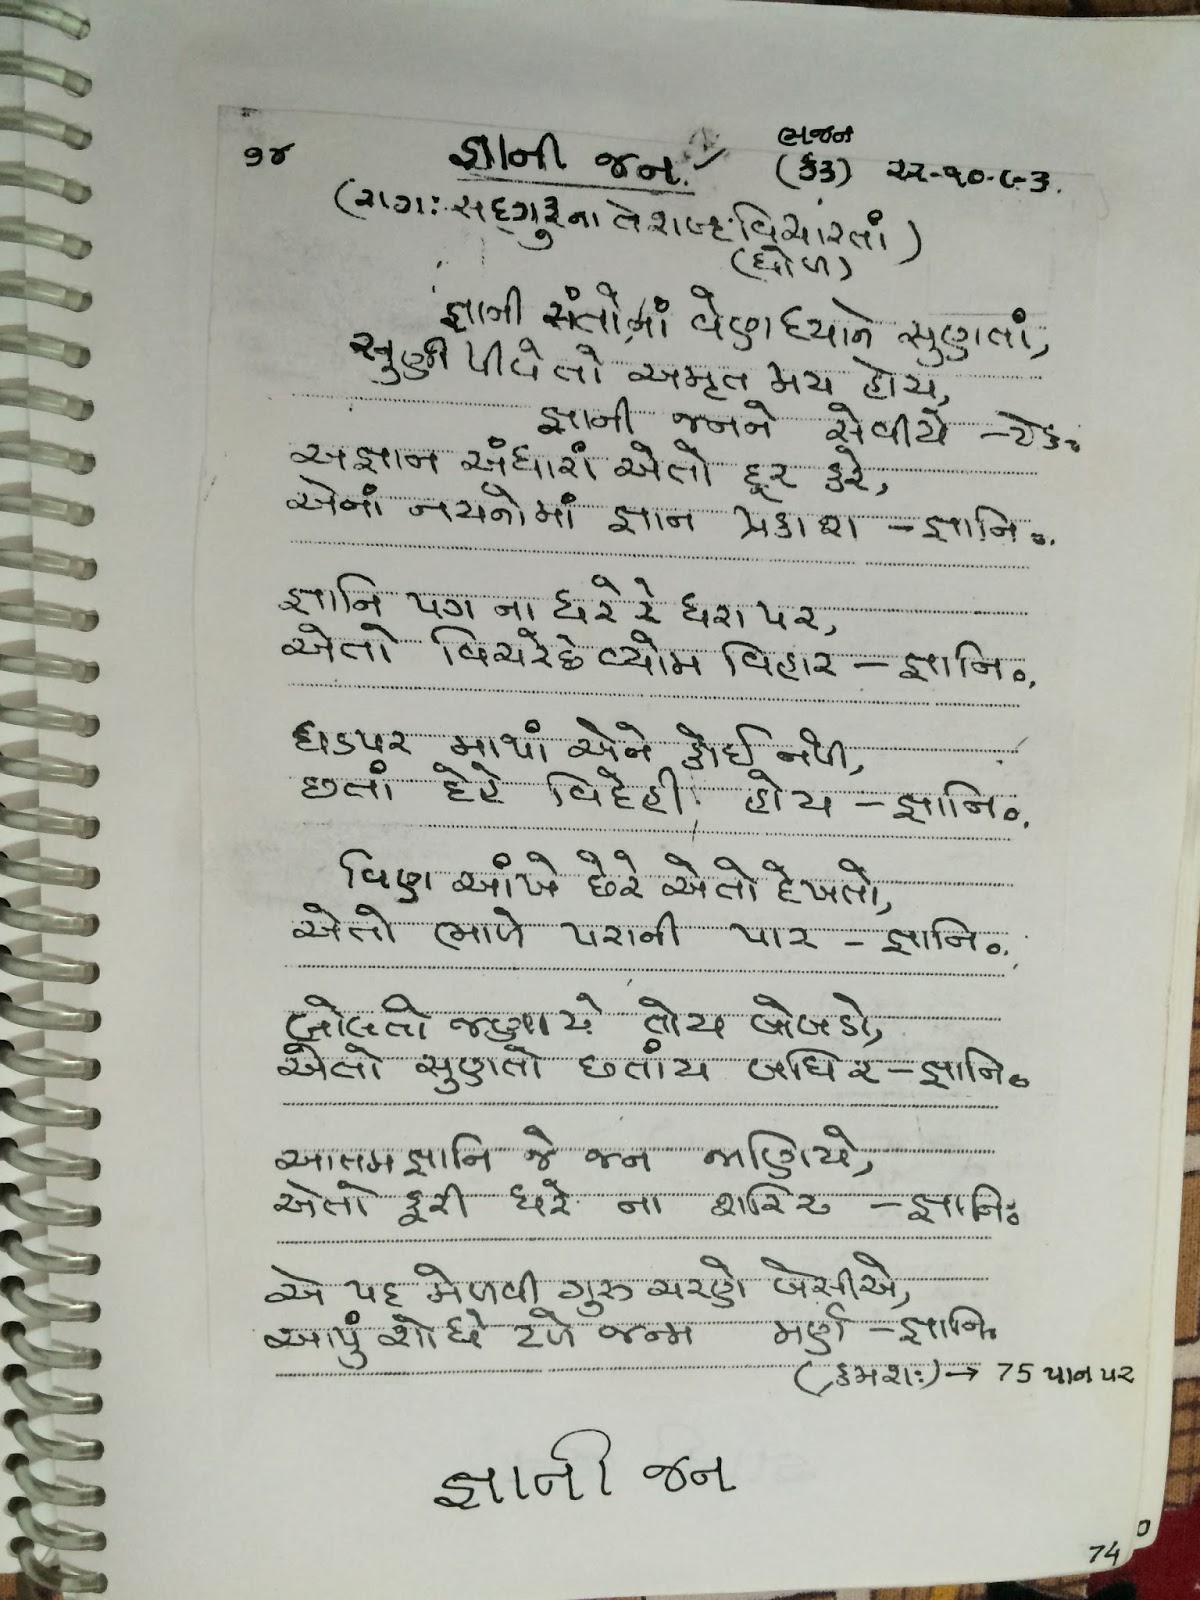 ૭૪ જ્ઞાની જન. ભજન
(કક) ૨૨-૧૦-૮૩.
(રાગ: સદ્ગુરુના તે શબ્દ વિચારતાં)
(ધોળ)
જ્ઞાની સંતોનાં વેણ ધ્યાને સુણતાં,
સુણી પીવે તો અમૃત મય હોય,
જ્ઞાની જનને સેવીયે -ટેક૦
અજ્ઞાન અંધારાં એતો દૂર કરે,
એનાં નયનોમાં જ્ઞાન પ્રકાશ -જ્ઞાનિ૦.
જ્ઞાનિ પગ ના ધરે રે ધરા પર,
એતો વિચરેછે વ્યોમ વિહાર -જ્ઞાનિ૦.
ધડપર માથાં એને કોઈ નથી,
છતાં દેહે વિદેહી હોય -જ્ઞાનિ૦.
વિણ આંખે છેરે એતો દેખતો,
એતો ભાળે પરાની પાર -જ્ઞાનિ૦.
બોલતો જણાયે તોય બોબડો,
એતો સુણતો છતાંય બધિર -જ્ઞાનિ૦
આતમજ્ઞાનિ જે જન જાણિયે,
એતો ફરી ધરે ના શરિર -જ્ઞાનિ૦
એ પદ મેળવી ગુરુ ચરણે બેસીએ,
આપું શોધે ટળે જન્મ મર્ણ -જ્ઞાનિ૦
(ક્રમશઃ) → 75 પાન પર
જ્ઞાની જન
74